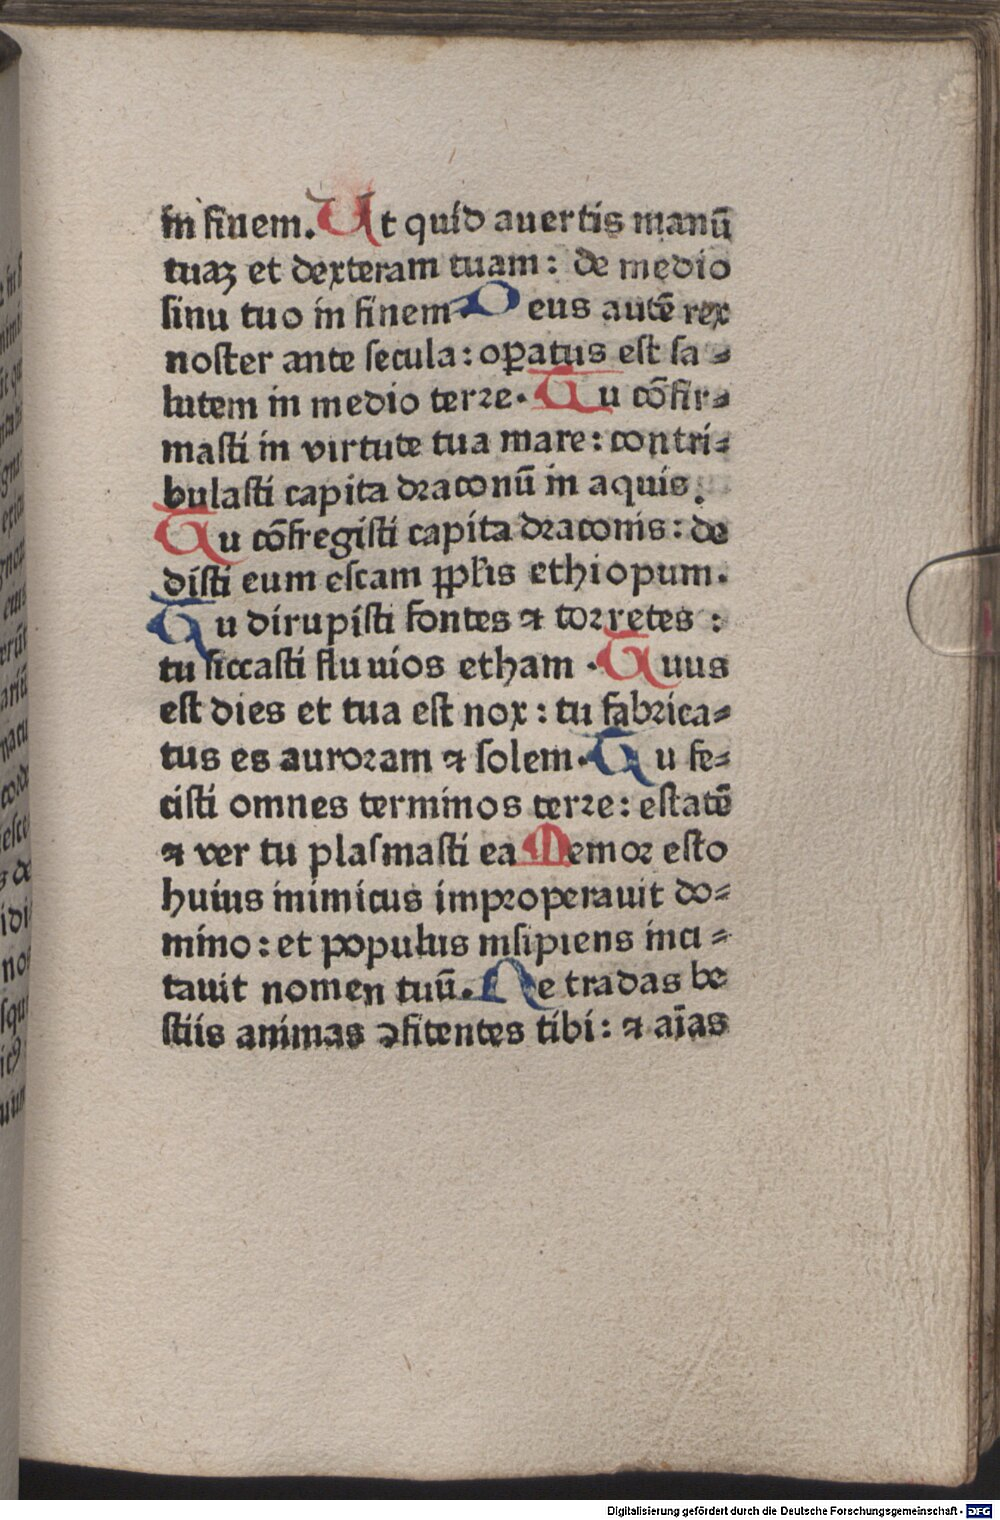 in finem. Ut quid auertis manū
tuaꝫ et dexteram tuam: de medio
sinu tuo in finem Deus autē rex
noster ante secula: oꝑatus est sa⸗
lutem in medio terre. Tu cōfir⸗
masti in virtute tua mare: contri⸗
bulasti capita draconū in aquis.
Tu cōfregisti capita draconis: de
disti eum escam ꝓplis ethiopum.
Tu dirupisti fontes ⁊ torretes :
tu siccasti fluuios etham . Tuus
est dies et tua est nox: tu fabrica⸗
tus es auroram ⁊ solem. Tu fe⸗
cisti omnes terminos terre: estatē
⁊ ver tu plasmasti ea Memor esto
huius inimicus improperauit do⸗
mino: et populus insipiens inci⸗
tauit nomen tuū. Ne tradas be
stiis animas ↄfitentes tibi: ⁊ aīas
Digitalisierung gefördert durch die Deutsche Forschungsgemeinschaft - DFG